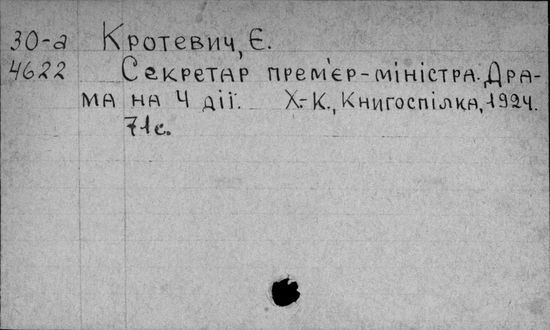 30-а Кротевич, Є.
4622 Секретар прем'єр-міністра. Дра-
ма на 4 дії. Х.-К., Книгоспілка, 1924.
71с.